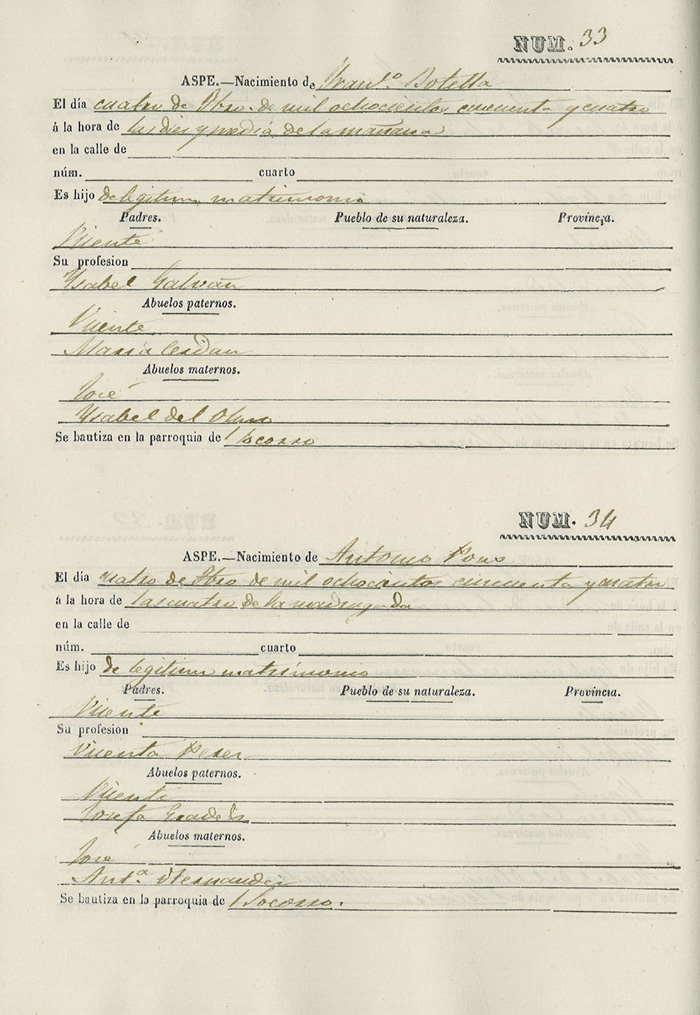 NUM. 33
ASPE.—Nacimiento de Fran.co Botella
El día cuatro de Obre. de mil ochocientos cincuenta y cuatro
á la hora de las diez y media de la mañana
en la calle de
núm. cuarto
Es hijo de legitimo matrimonio
Padres. Pueblo de su naturaleza. Provincia.
Vicente
Su profesion
Ysabel Galvañ
Abuelos paternos.
Vicente
Maria Cerdan
Abuelos maternos.
José
Ysabel del Olmo
Se bautiza en la parroquia de Socorro
NUM. 34
ASPE.—Nacimiento de Antonio Pons
El día cuatro de de mil ochocientos cincuenta y cuatro
á la hora de las cuatro de la madrugada
en la calle de
núm. cuarto
Es hijo de legitimo matrimonio
Padres. Pueblo de su naturaleza. Provincia.
Vicente
Su profesion
Vicenta Perez
Abuelos paternos.
Vicente
Josefa
Abuelos maternos.
José
Ant.a Hernandez
Se bautiza en la parroquia de Socorro.